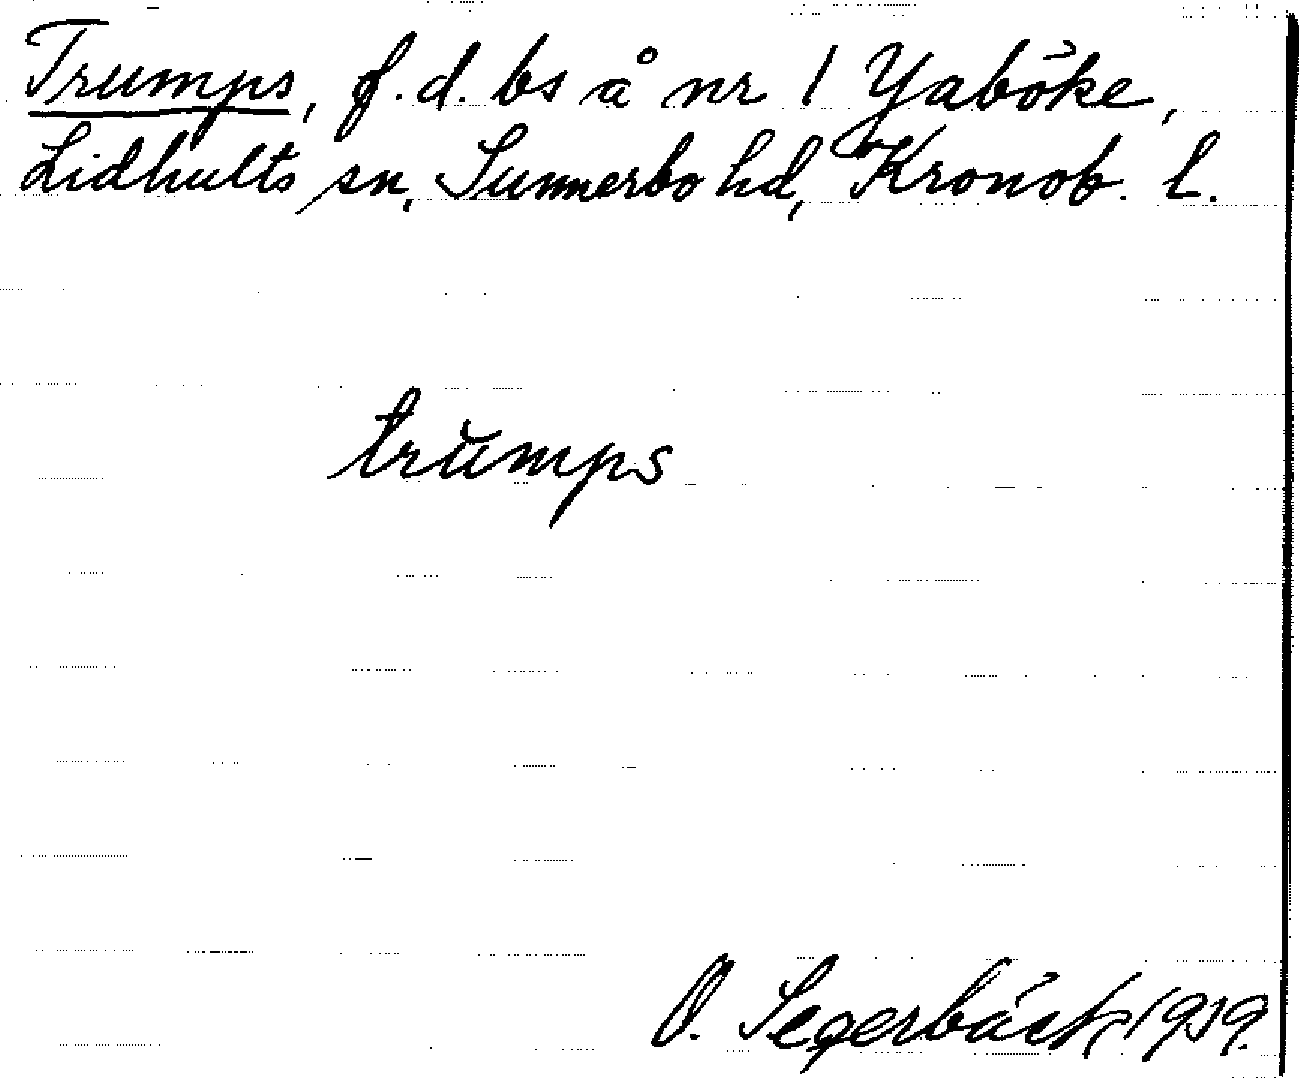 Trumps, f.d. bs å nr 1 Yaböke,
Lidhults sn, Sunnerbo hd, Kronob. l.
trŭmps
O. Segerbäck, 1939.